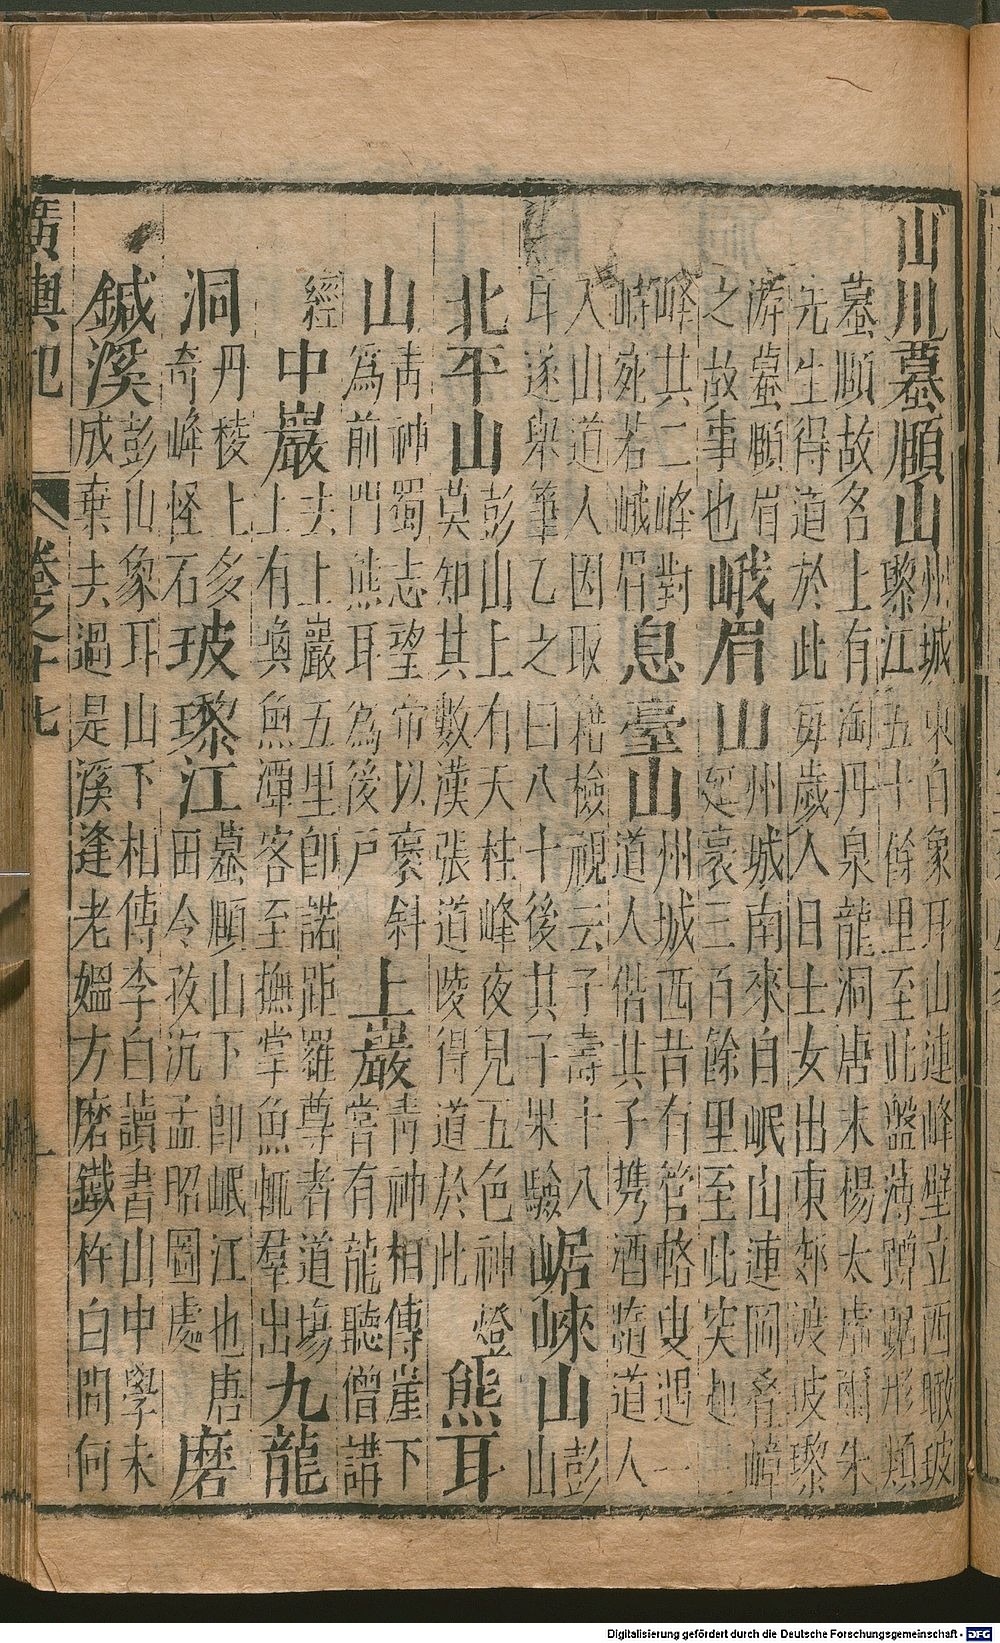 山川蟇頤山州城東自象耳山連峰壁立西瞰玻
黎江五十餘里至此盤薄蹲踞形類
蟇頤故名上有淘丹泉龍洞唐末楊太虛爾朱
先生得道於此每歲人日士女出東郊渡玻瓈
游蟇頤眉
之故事也峨眉山州城南來自岷山連岡疊嶂
延袤三百餘里至此突起
峰共二峰對
峙宛若峨眉息臺山州城西昔有管輅叟遇一
道人偕其子携酒踏道人
入山道人因取籍檢視云子壽十八
耳遂舉筆乙之曰八十後其子果驗崌崍山彭
山
北平山彭山上有天柱峰夜見五色神燈
莫知其數漢張道陵得道於此熊耳
山青神蜀志望帝以褒斜
為前門熊耳為後戶上巖青神相傳崖下
嘗有龍聽僧講
經中巖去上巖五里卽諾距羅尊者道場
上有喚魚潭客至撫掌魚輒羣出九龍
洞丹棱上多
奇峰怪石玻瓈江蟇頤山下卽岷江也唐
田令孜沉孟昭圖處磨
鍼溪彭山象耳山下相傳李白讀書山中學未
成棄去過是溪逢老媼方磨鐵杵白問何
廣輿記 卷之十七
Digitalisierung gefördert durch die Deutsche Forschungsgemeinschaft - DFG